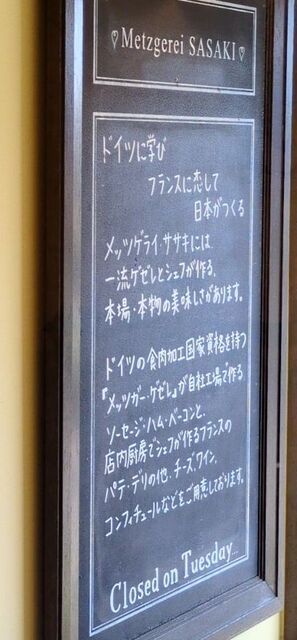 Metzgerei SASAKI
ドイツに学び
フランスに恋して
日本がつくる
メッツゲライササキには
一流ゲゼレとシェフが作る、
本場・本物の美味しさがあります。
ドイツの食肉加工国家資格を持つ
『メッツガー・ゲゼレ』が自社工場で作る
ソーセージ・ハム・ベーコンと、
店内厨房でシェフが作るフランスの
パテ・デリの他、チーズ、ワイン、
コンフィチュールなどをご用意しております。
Closed on Tuesday...